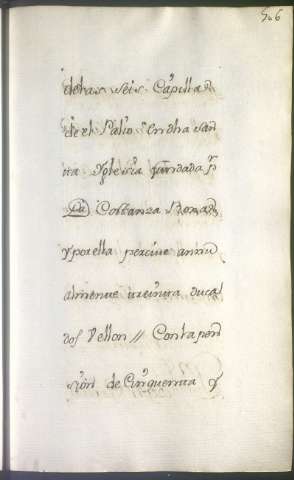 506
delas seis Capillas
de el Palio en dha san
ta Iglesia fundada p.r
D.a Costanza
y por ella percive annu
almente treinta duca
dos Vellon // Con la pen
sion de Cinquenta y